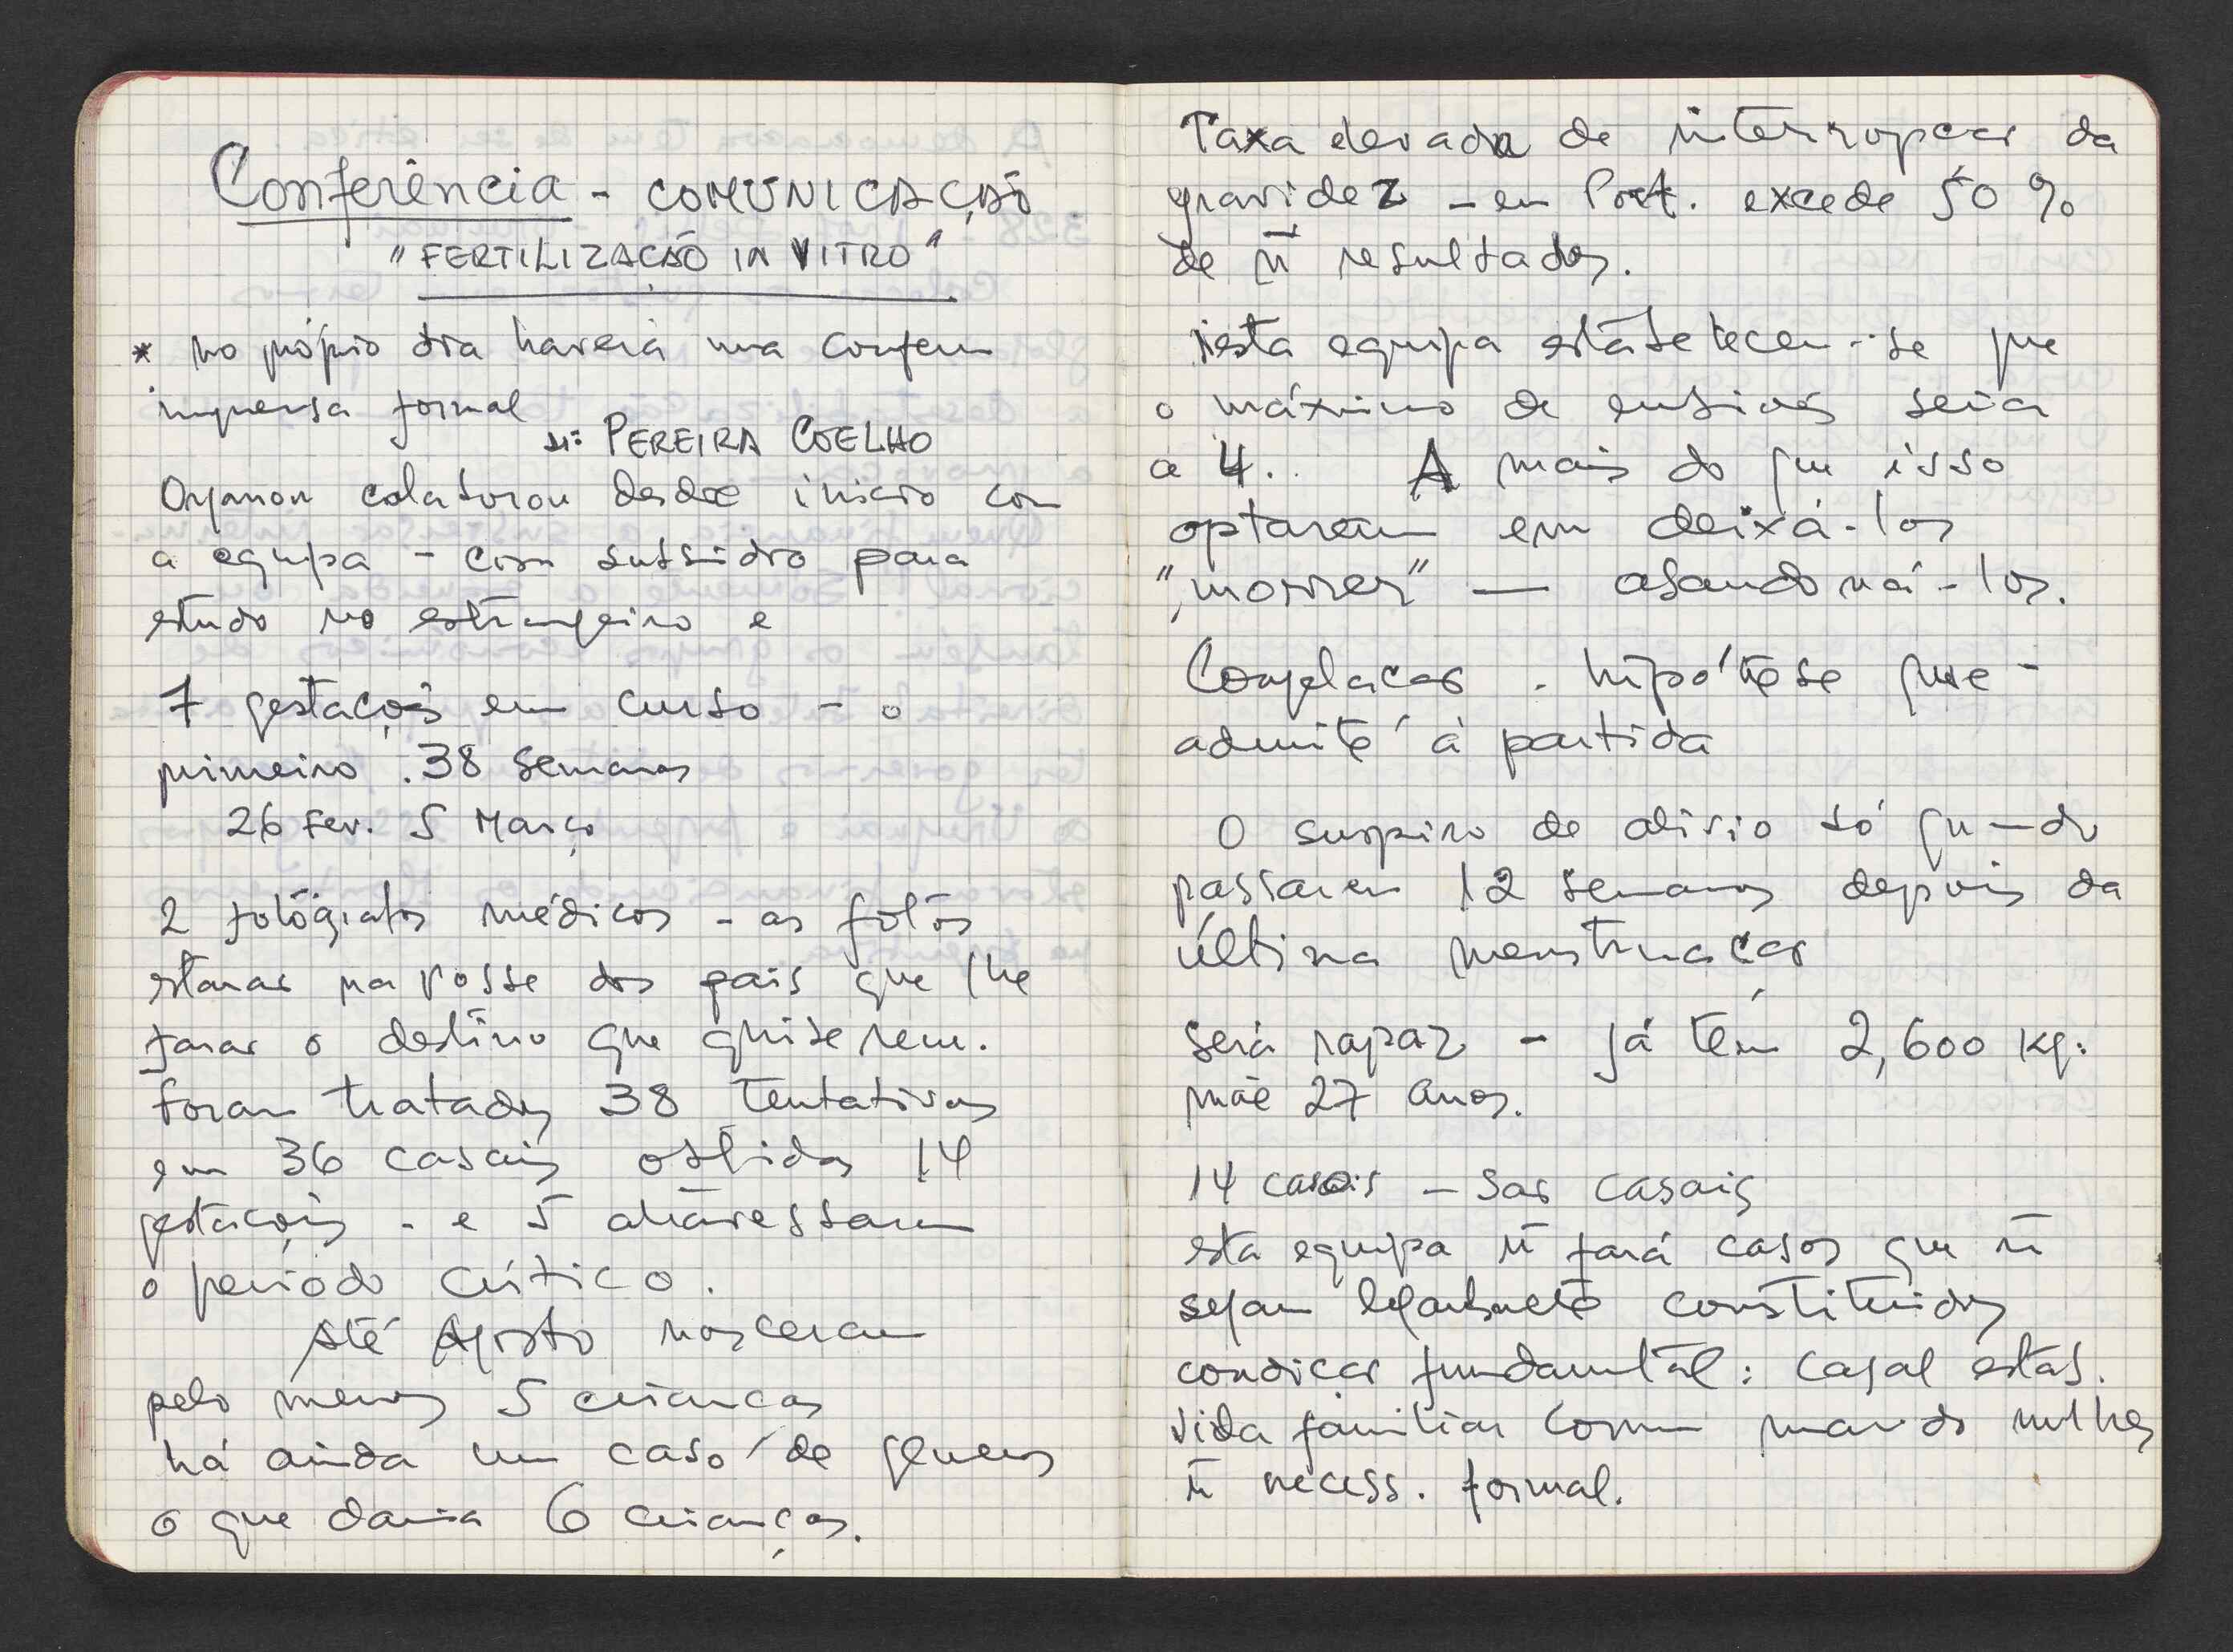 Conferência - COMUNICAÇÃO
"FERTILIZAÇÃO IN VITRO"
* no próprio dia haverá uma conferen
imprensa formal
Dr: PEREIRA COELHO
Organon colaborou desde inicio com
a equipa - com subsidio para
estudo no estrangeiro e
7 gestações em curso - o
primeiro . 38 semanas
26 Fev. 5 Março
2 fotógrafos médicos - as fotos
estarao na posse dos pais que lhe
farao o destino que quiserem.
Foram tratados 38 tentativas
em 36 casais obtidas 14
gestações - e 5 atravessaram
o periodo critico.
Até Agosto nasceram
pelo menos 5 criancas
há ainda um caso de gemeos
o que daria 6 crianças.
Taxa elevada de interrupcao da
gravidez - em Port. excede 50 %
de ñ resultados.
nesta equipa estabeleceu-se que
o máximo de embrioes seria
a 4. A mais do que isso
optaram em deixá-los
"morrer" — abandoná-los.
Congelacao . hipótese que
admite à partida
O suspiro de alivio só quando
passarem 12 semanas depois da
última menstruacao
Será rapaz - já tem 2,600 kg.
mãe 27 anos.
14 casais - sao casais
esta equipa ñ fará casos que ñ
sejam legalmete constituidos
condiçao fundamtal: casal estab.
vida familiar comum marido mulher
ñ necess. formal.